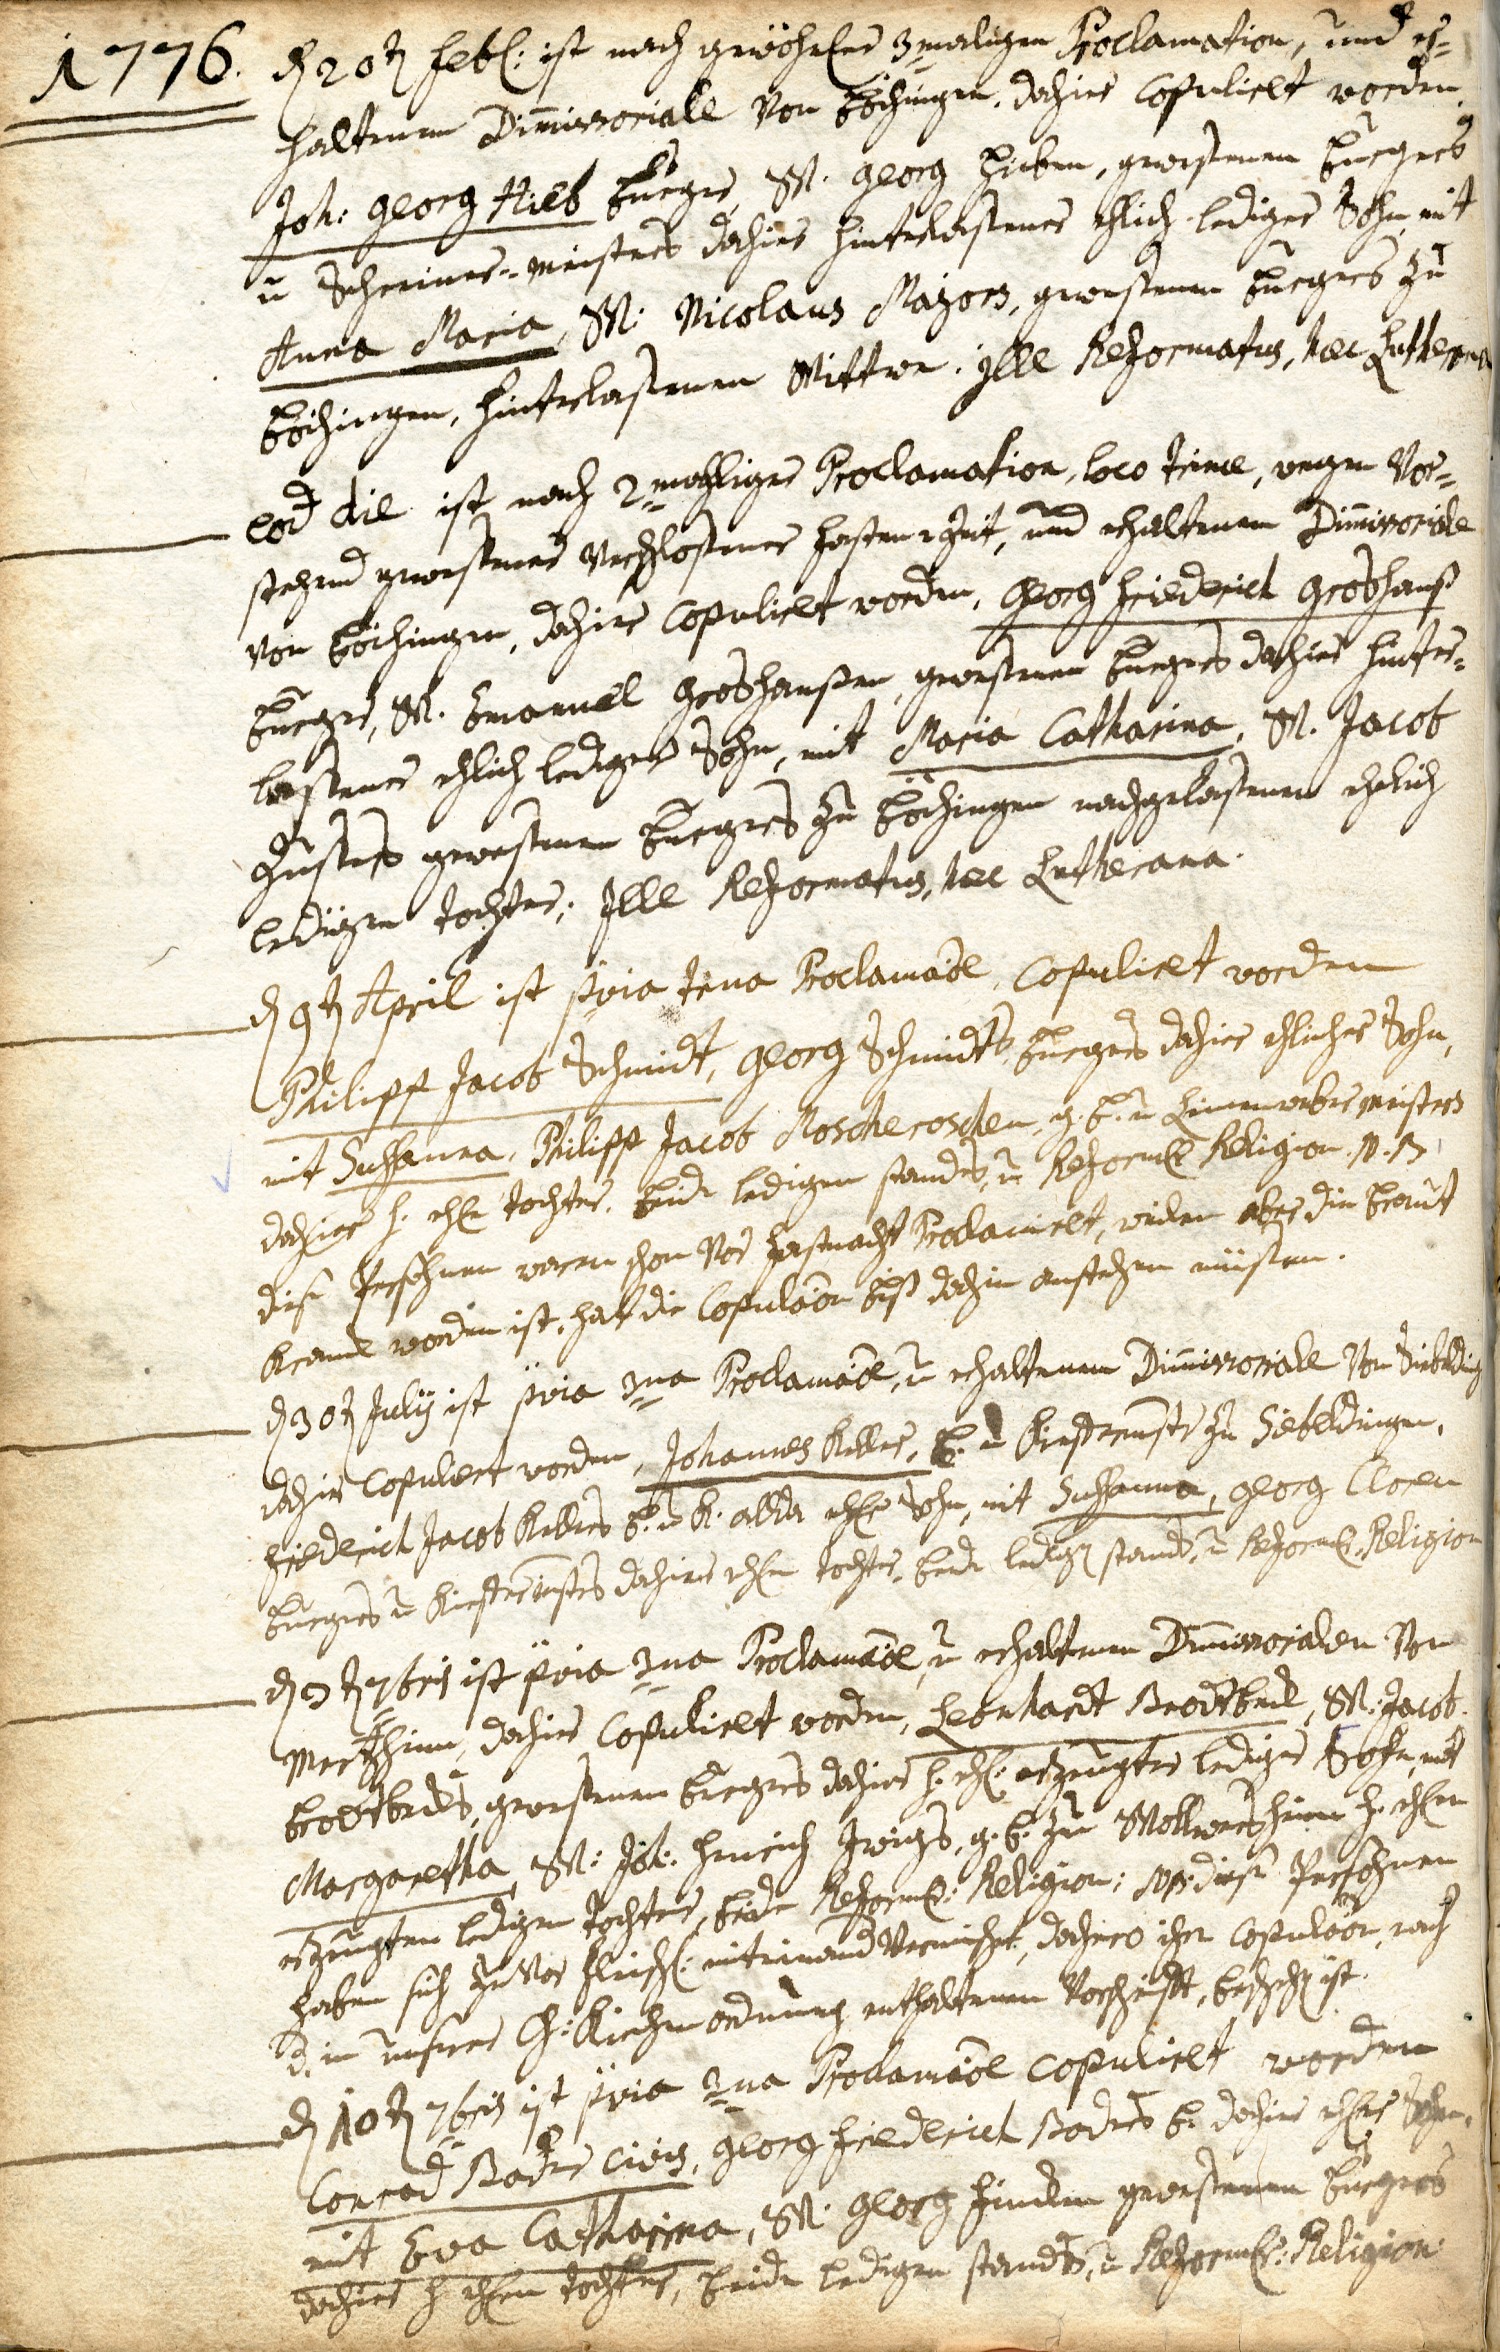 1776. d 20t Febr: ist nach gewöhnlr 3maligen Proclamation, und er=
haltenem Dimissoriale von Böchingen, dahier Copuliert worden
Joh: Georg Hieb Burger, W. Georg Hieben, gewesenen Burgers
u Schreiner-meisters dahier hinterlassener ehlich lediger Sohn, mit
Anna Maria, W. Nicolaus Majors, gewesenen Burgers zu
Böchingen, hinterlassenen Wittwe. Ille Reformatus, haec Lutherana
eod die ist nach 2mahliger Proclamation, loco trinae, wegen vor=
stehend gewesener verschlossener fasten Zeit, und erhaltenem Dimissoriale
von Böchingen, dahier Copuliert worden, Georg Friederich Groshanß
Burger, W. Emanuel Groshanßen, gewesenen Burgers dahier hinter=
lassener ehlich lediger Sohn, mit Maria Catharina, W. Jacob
gewesenen Burgers zu Böchingen nachgelassenen ehelich
ledigen tochter; Ille Reformatus, haec Lutherana.
d 9t April ist pvia trina Proclamaoe, Copuliert worden
Philipp Jacob Schmidt, Georg Schmidts, Burgers dahier ehlicher Sohn,
mit Sussanna, Philipp Jacob Moscheroschen, g. b. u Leinenweber meisters
dahier h. ehl tochter. beide ledigen standes, u Reforml Religion. N.B.
diese Persohnen waren schon vor fastnacht Proclamiert, weilen aber die Braut
kranck worden ist, hat die Copulaon biß dahin anstehen müssen.
d 30t Julij ist pvia 3na Proclamaoe, u erhaltenem Dimissoriale von Siebelding
dahier Copuliert worden, Johannes Keller, B. u zu Siebeldingen,
Friederich Jacob Kellers B. u K. alda ehlr Sohn, mit Sussanna, Georg Cloren
Burgers u dahier ehln tochter, beide ledign stands, u Reforml. Religion
d 3t 7bris ist pvia 3na Proclamaoe, u erhaltenem Dimissorialen von
dahier Copuliert worden, Lebrhardt Brodtbeck, W. Jacob
Brodtbecks, gewesenen Burgers dahier h. ehl. erzeugter lediger Sohn, mit
Margaretha, W. Joh. Henrich g. b. zu Wollmersheim h. ehln
erzeugten ledigen tochter, beide Reforml: Religion; NB. diese Persohnen
haben sich zu vor fleischl: miteinand vermischet, dahero ihre Copulaon, nach
d. in unserer Ch: Kirchen ordnung enthaltenen Vorschrifft, ist.
d 10t 7bris ist pvia 3na Proclamaoe copuliert worden
Conrad Bader civis, Georg Friederich Baders b. dahier ehlr Sohn,
mit Eva Catharina, W. Georg gewesenen Burgers
dahier h ehln tochter, beide ledigen stands, u Reforml: Religion.